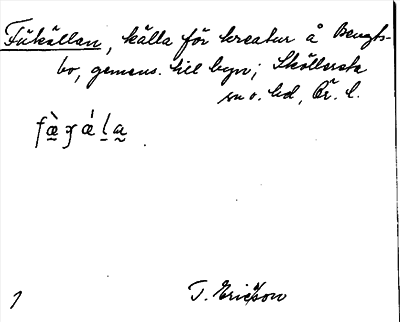 Fäkällan, källa för kreatur å Bengts-
bo, gemens. till byn; Sköllersta
sn o. hd, Ör. l.
T. Ericsson